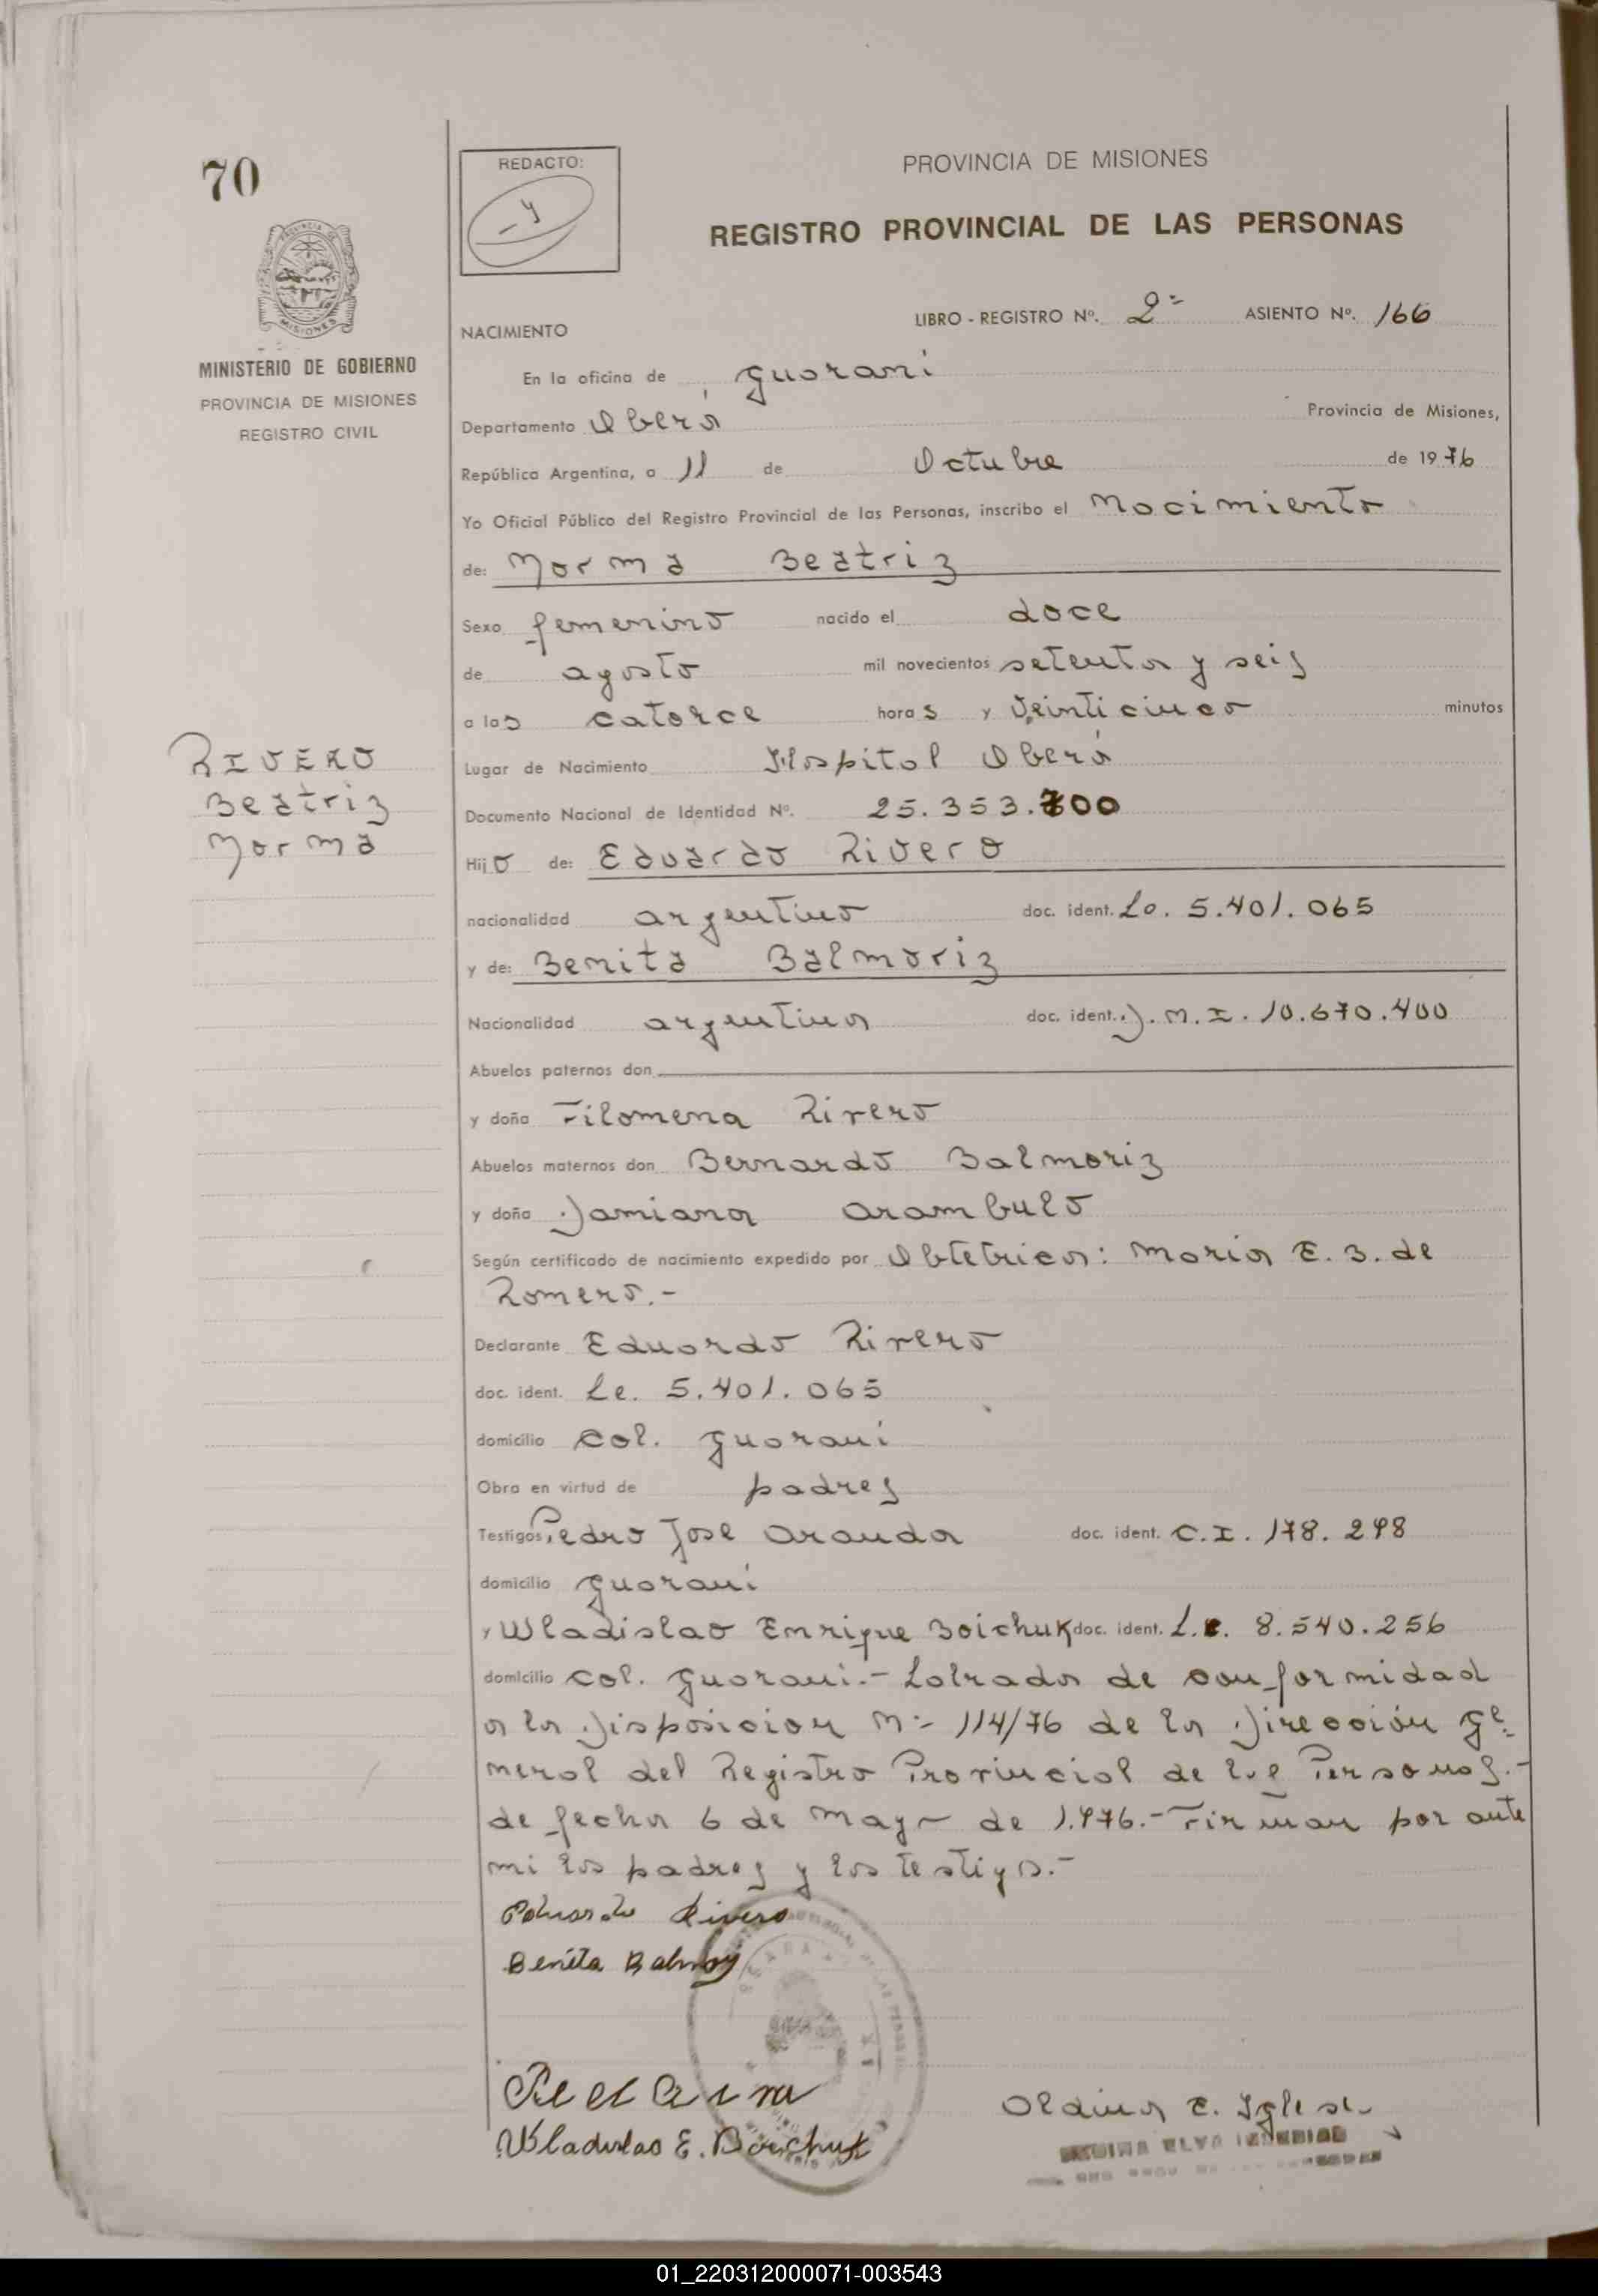 70
REDACTO:
PROVINCIA DE MISIONES
REGISTRO PROVINCIAL DE LAS PERSONAS
MISIONES
MINISTERIO DE GOBIERNO
PROVINCIA DE MISIONES
REGISTRO CIVIL
NACIMIENTO
LIBRO - REGISTRO Nº. 2º ASIENTO Nº. 166
En la oficina de Guarani
Departamento Oberá Provincia de Misiones,
República Argentina, a 11 de Octubre de 1976
Yo Oficial Público del Registro Provincial de las Personas, inscribo el Nacimiento
de: Norma Beatriz
Sexo femenino nacido el doce
de agosto mil novecientos setenta y seis
a las catorce horas y veinticinco minutos
RIVERO
Beatriz
Norma
Lugar de Nacimiento Hospital Oberá
Documento Nacional de Identidad Nº. 25.353.700
Hijo de: Eduardo Rivero
nacionalidad argentino doc. ident. Le. 5.401.065
y de: Benita Balmoriz
Nacionalidad argentina doc. ident. D.N.I. 10.670.400
Abuelos paternos don
y doña Filomena Rivero
Abuelos maternos don Bernardo Balmoriz
y doña Damiana Arambulo
Según certificado de nacimiento expedido por Obtetrica: Maria E. B. de
Romero.-
Declarante Eduardo Rivero
doc. ident. Le. 5.401.065
domicilio Col. Guarani
Obra en virtud de padres
Testigos Pedro Jose Aranda doc. ident. C.I. 178.298
domicilio Guarani
y Wladislao Enrique Boichuk doc. ident. L.E. 8.540.256
domicilio Col. Guarani.- Labrada de conformidad
a la Disposicion Nº 114/76 de la Dirección Ge=
neral del Registro Provincial de las Personas.-
de fecha 6 de Mayo de 1.976.- Firman por ante
mi los padres y los testigos.-
Eduardo Rivero
Benita Balmoriz
Wladislao E. Boichuk
01_220312000071-003543